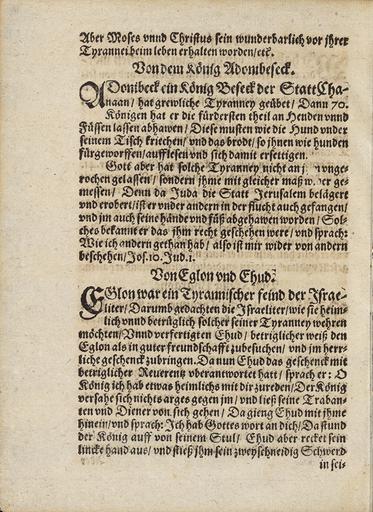 Aber Moses vnnd Christus sein wunderbarlich vor jhrer
Tyrannei beim leben erhalten worden/etc.
Von dem König Adonibeseck.
ADonibeck ein König Beseck der Statt Cha-
naan/hat grewliche Tyranney geübet/Dann 70.
Königen hat er die fürdersten theil an Henden vnnd
Füssen lassen abhawen/Diese musten wie die Hund vnder
seinem Tisch kriechen/vnd das brodt/so jhnen wie hunden
fürgeworffen/aufflesen vnd sich damit ersettigen.
Gott aber hat solche Tyranney nicht an vnge-
rochen gelassen/sondern jhme mit gleicher maß wider ge-
messen/Denn da Juda die Statt Jerusalem belägert
vnd erobert/ist er vnder andern in der flucht auch gefangen/
vnd jm auch seine hände vnd füß abgehawen worden/Sol-
ches bekannt er das jhm recht geschehen were/vnd sprach:
Wie ich andern gethan hab/also ist mir wider von andern
beschehen/Jos.10.Jud.1.
Von Eglon vnd Ehud.
EGlon war ein Tyrannischer feind der Israe-
liter/Darumb gedachten die Israeliter/wie sie heim-
lich vnnd betrüglich solcher seiner Tyranney wehren
möchten/Vnnd verfertigten Ehud/betriglicher weiß den
Eglon als in guter freundschafft zubesuchen/vnd jm herr-
liche geschenck zubringen. Da nun Ehud das geschenck mit
betriglicher Reuerentz vberantwortet hatt/sprach er: O
König ich hab etwas heimlichs mit dir zureden/Der König
versahe sich nichts arges gegen jm/vnd ließ seine Traban-
ten vnd Diener von sich gehen/Da gieng Ehud mit jhme
hinein/vnd sprach: Ich hab Gottes wort an dich/Da stund
der König auff von seinem Stul/Ehud aber recket sein
lincke hand aus/vnd stieß jhm sein zweyschneidig Schwerd
in sei-